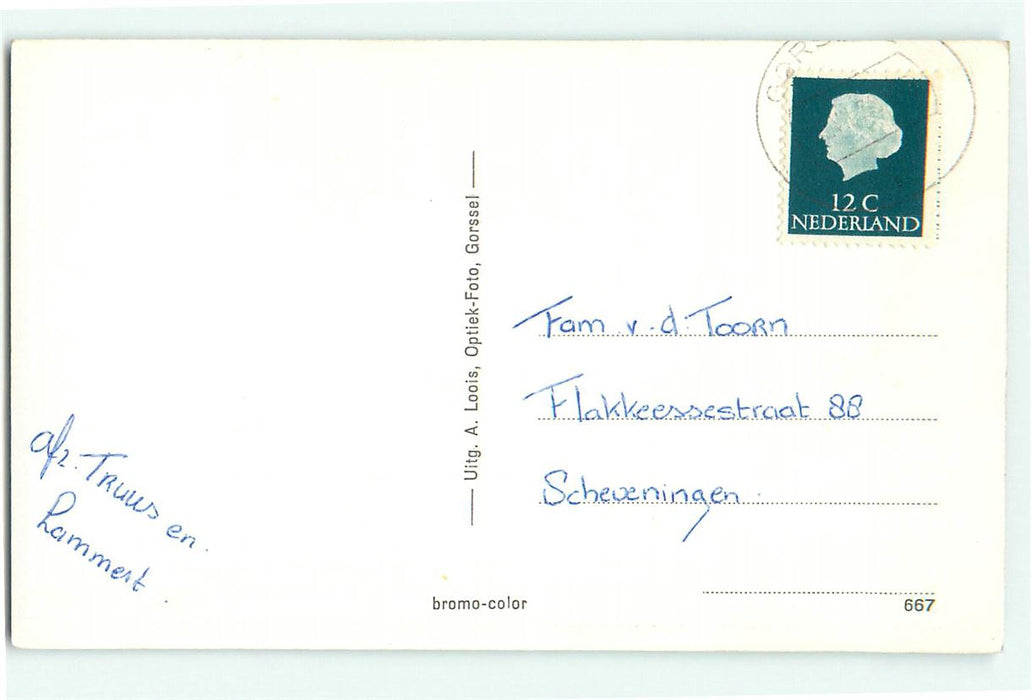 12 C
NEDERLAND
Uitg. A. Loois, Optiek-Foto, Gorssel
Fam v.d. Toorn
Flakkeessestraat 88
Scheveningen
afz. Truus en
Lammert
bromo-color
667